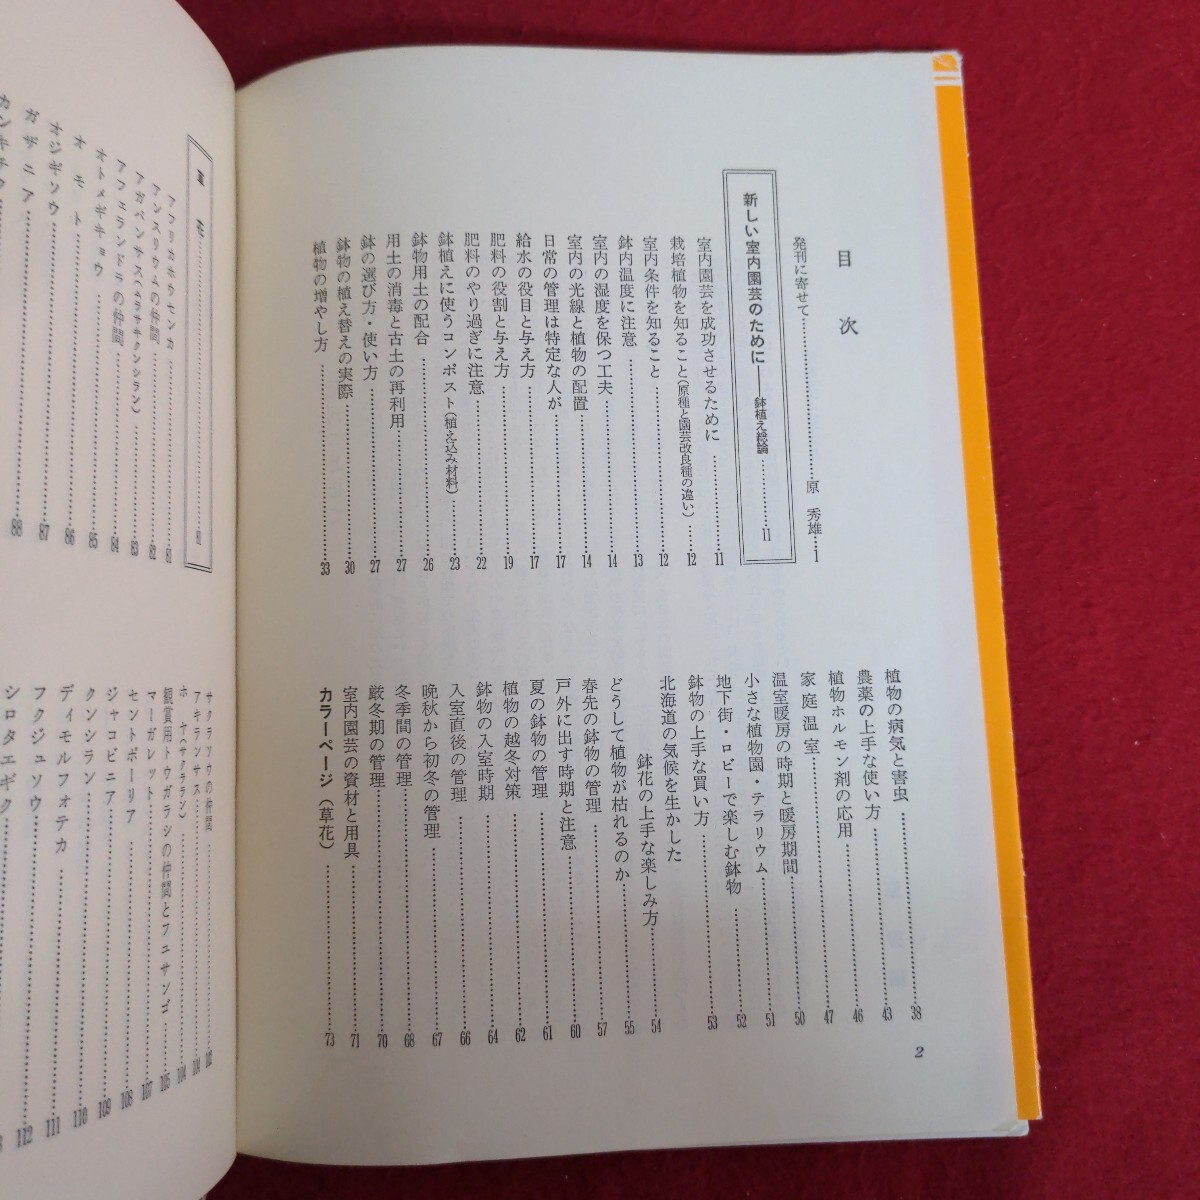 目次
発刊に寄せて……原 秀雄…1
新しい室内園芸のために――鉢植え総論……11
室内園芸を成功させるために……11
栽培植物を知ること(原種と園芸改良種の違い)……12
室内条件を知ること……12
鉢内温度に注意……13
室内の湿度を保つ工夫……14
室内の光線と植物の配置……14
日常の管理は特定な人が……17
給水の役目と与え方……17
肥料の役割と与え方……19
肥料のやり過ぎに注意……22
鉢植えに使うコンポスト(植え込み材料)……23
鉢物用土の配合……26
用土の消毒と古土の再利用……27
鉢の選び方・使い方……27
鉢物の植え替えの実際……30
植物の増やし方……33
植物の病気と害虫……38
農薬の上手な使い方……43
植物ホルモン剤の応用……46
家庭温室……47
温室暖房の時期と暖房期間……50
小さな植物園・テラリウム……51
地下街・ロビーで楽しむ鉢物……52
鉢物の上手な買い方……53
北海道の気候を生かした
鉢花の上手な楽しみ方……54
どうして植物が枯れるのか……55
春先の鉢物の管理……57
戸外に出す時期と注意……60
夏の鉢物の管理……61
植物の越冬対策……62
鉢物の入室時期……64
入室直後の管理……66
晩秋から初冬の管理……67
冬季間の管理……68
厳冬期の管理……70
室内園芸の資材と用具……71
カラーページ(草花)……73
2
草花……81
アフリカホウセンカ……81
アンスリウムの仲間……82
アガパンサス(ムラサキクンシラン)……83
アフェランドラの仲間……84
オトメギキョウ……85
オモト……86
オジギソウ……87
ガザニア……88
サクラソウの仲間……102
アキランサス……104
ホヤ(サクララン)……104
観賞用トウガラシの仲間とフユサンゴ……105
マーガレット……107
セントポーリア……108
ジャコビニア……109
クンシラン……110
ディモルフォテカ……111
フクジュソウ……112
シロタエギク……